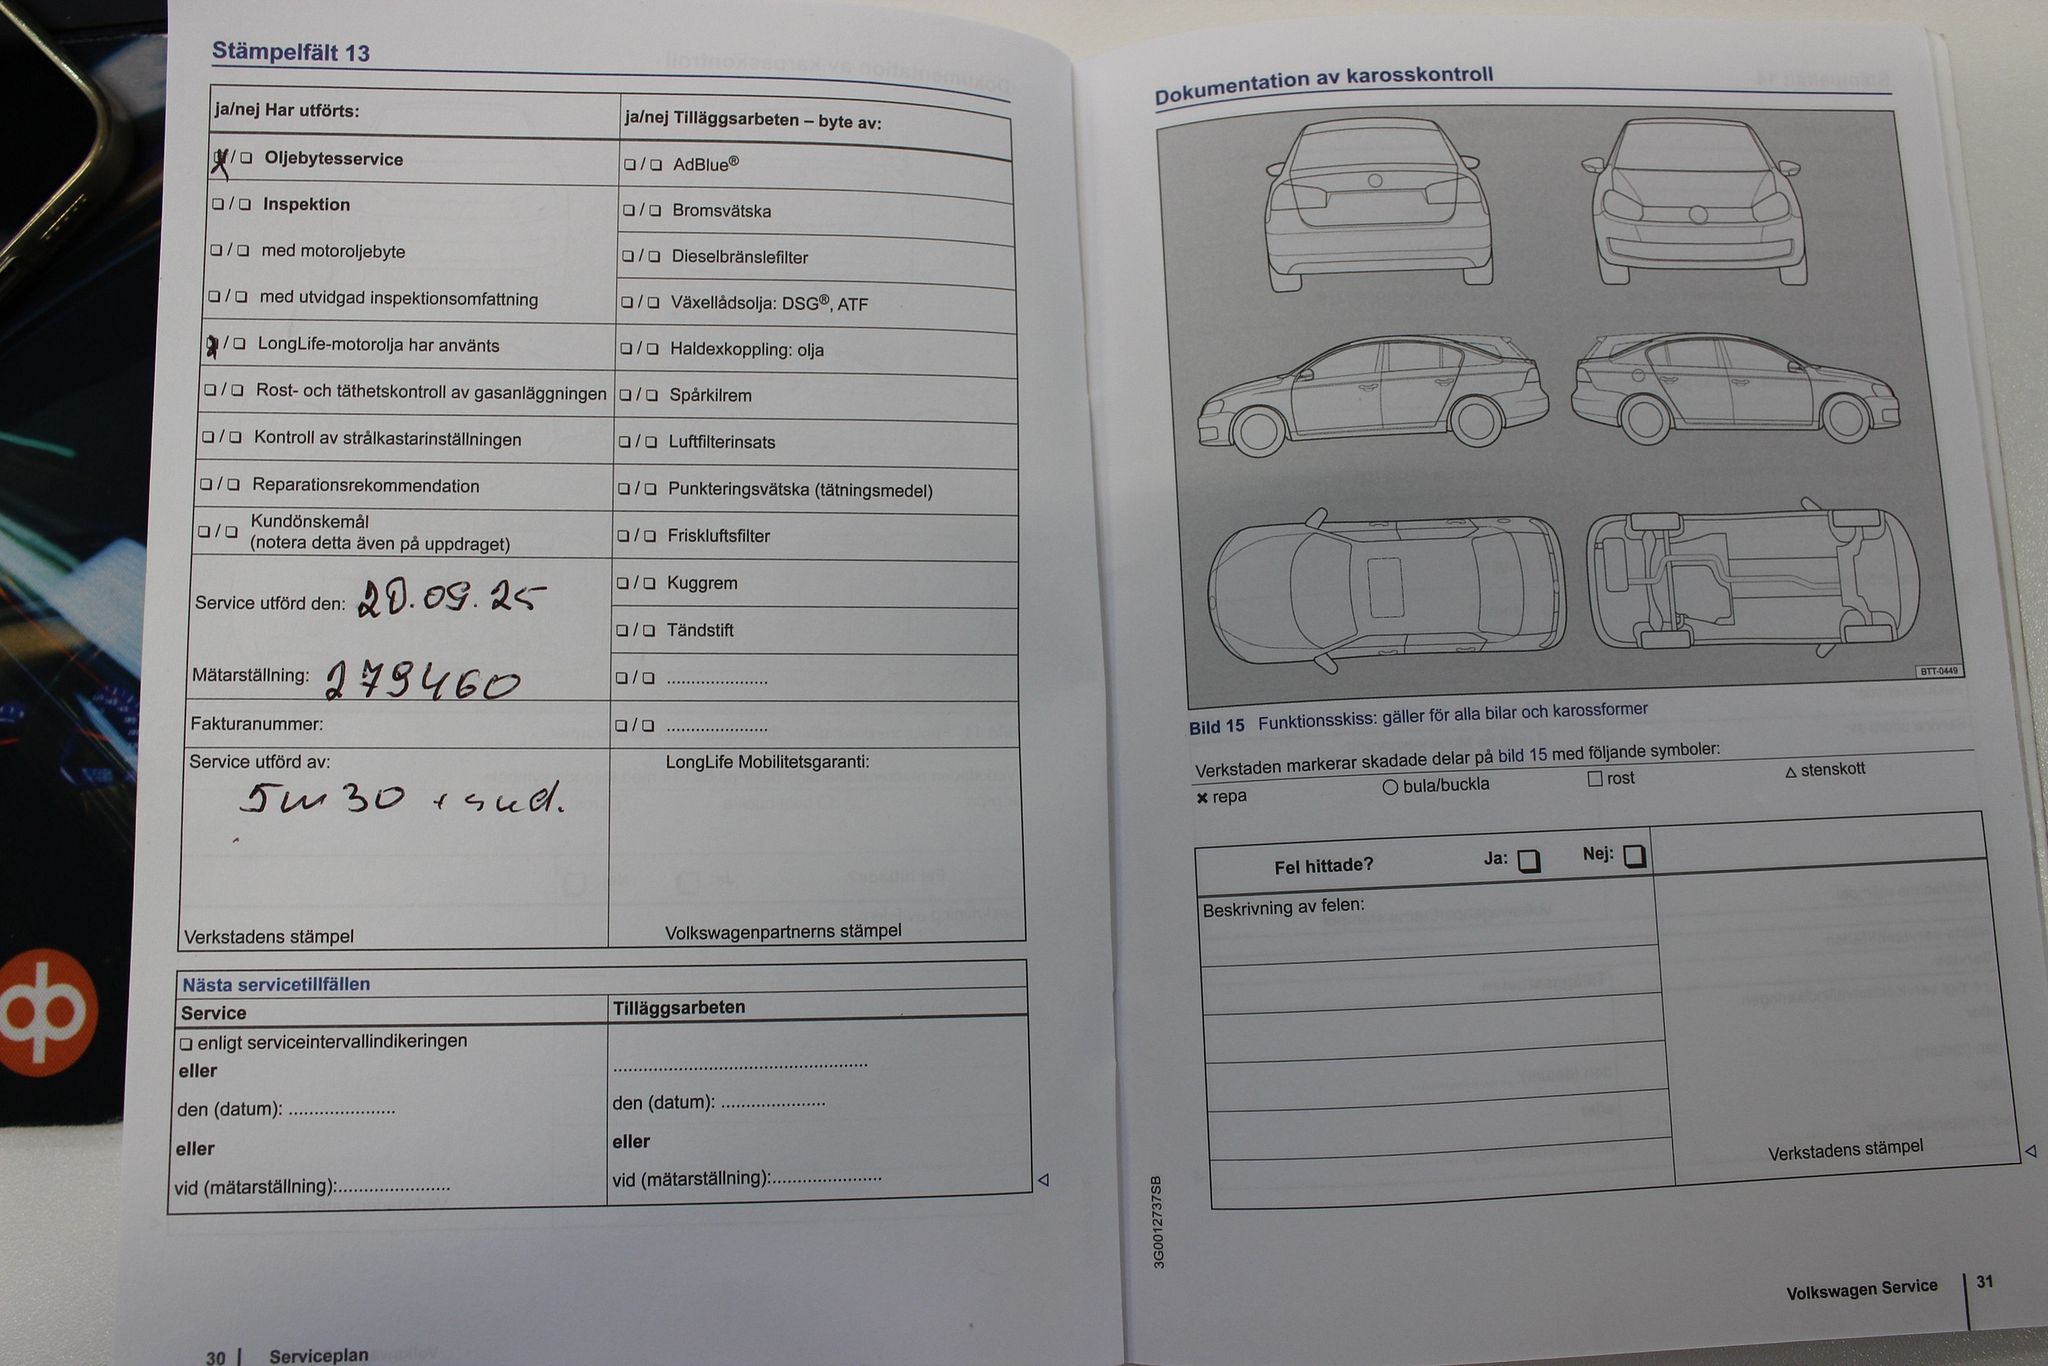 Stämpelfält 13
ja/nej Har utförts:
ja/nej Tilläggsarbeten – byte av:
Oljebytesservice
AdBlue®
Inspektion
Bromsvätska
med motoroljebyte
Dieselbränslefilter
med utvidgad inspektionsomfattning
Växellådsolja: DSG®, ATF
LongLife-motorolja har använts
Haldexkoppling: olja
Rost- och täthetskontroll av gasanläggningen
Spårkilrem
Kontroll av strålkastarinställningen
Luftfilterinsats
Reparationsrekommendation
Punkteringsvätska (tätningsmedel)
Kundönskemål
(notera detta även på uppdraget)
Friskluftsfilter
Kuggrem
Service utförd den: 20.09.25
Tändstift
Mätarställning: 279460
Fakturanummer:
Service utförd av:
LongLife Mobilitetsgaranti:
5w30
Verkstadens stämpel
Volkswagenpartnerns stämpel
Nästa servicetillfällen
Service
Tilläggsarbeten
enligt serviceintervallindikeringen
eller
den (datum): .....................
den (datum): .....................
eller
eller
vid (mätarställning):......................
vid (mätarställning):......................
30 | Serviceplan
Dokumentation av karosskontroll
BTT-0449
Bild 15 Funktionsskiss: gäller för alla bilar och karossformer
Verkstaden markerar skadade delar på bild 15 med följande symboler:
repa
bula/buckla
rost
stenskott
Fel hittade? Ja: Nej:
Beskrivning av felen:
Verkstadens stämpel
3G0012737SB
Volkswagen Service | 31